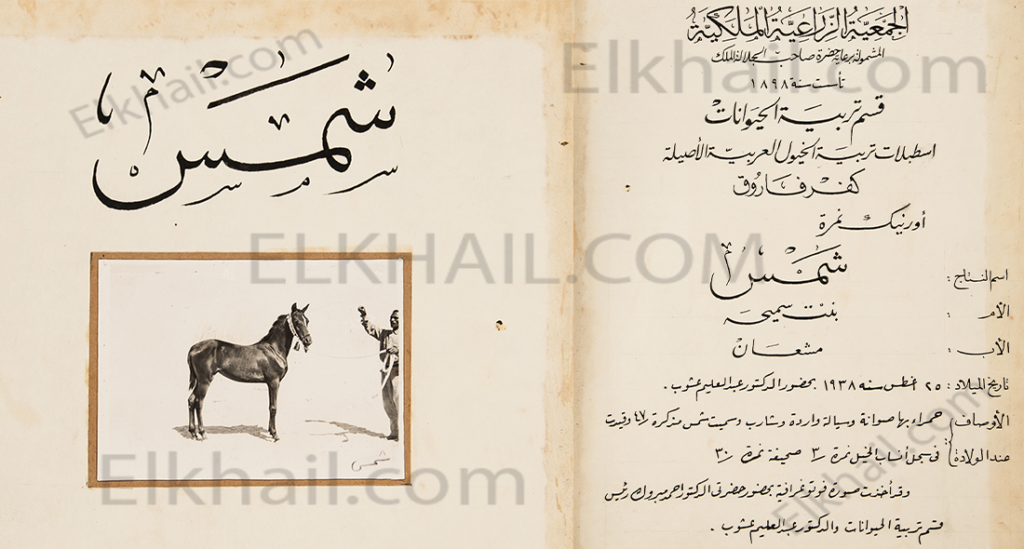 شمس
شمس
الجمعية الزراعية الملكية
المشمولة برعاية حضرة صاحب الجلالة الملك
تأسست سنة ١٨٩٨
قسم تربية الحيوانات
اسطبلات تربية الخيول العربية الأصيلة
كفر فاروق
أورنيك نمرة
اسم النتاج : شمس
الأم : بنت سميحه
الأب : مشعان
تاريخ الميلاد : ٢٥ غطس سنه ١٩٣٨ بحضور الدكتور عبد العليم عشوب .
الأوصاف حمراء بها صوانة وسيالة واردة وشارب وسميت شمس مذكرة ٤٧ وقيدت
عند الولادة فى سجل أنساب الخيل نمرة ٣ صحيفة نمرة ٣٠
وقد أخذت صورة فوتوغرافية بحضور حضرتى الدكتور احمد مبروك رئيس
قسم تربية الحيوانات والدكتور عبد العليم عشوب .
Elkhail.com
Elkhail.com
ELKHAIL.COM
Elkhail.com
Elkhail.com